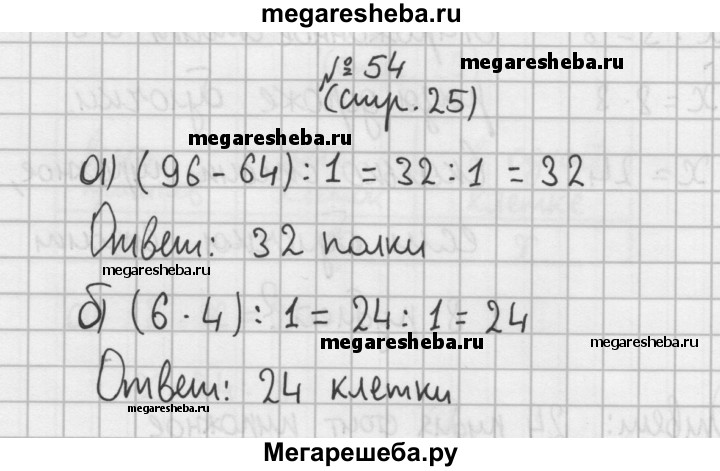 megaresheba.ru
№ 54
megaresheba.ru
(стр. 25)
megaresheba.ru
а) (96 - 64) : 1 = 32 : 1 = 32
Ответ: 32 полки
megaresheba.ru
б) (6 · 4) : 1 = 24 : 1 = 24
megaresheba.ru
megaresheba.ru
Ответ: 24 клетки
megaresheba.ru
Мегарешеба.ру